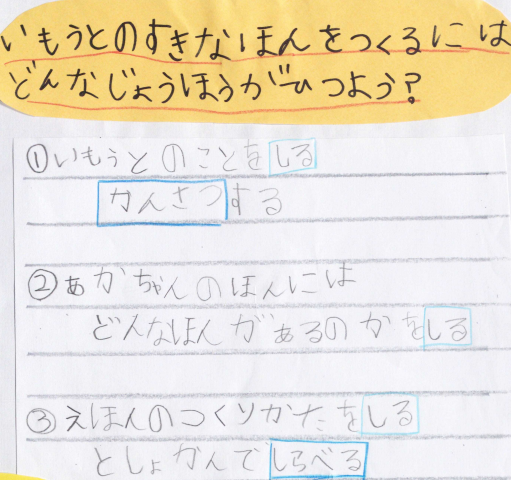 いもうとのすきなほんをつくるには
どんなじょうほうがひつよう？
①いもうとのことをしる
かんさつする
②あかちゃんのほんには
どんなほんがあるのかをしる
③えほんのつくりかたをしる
としょかんでしらべる